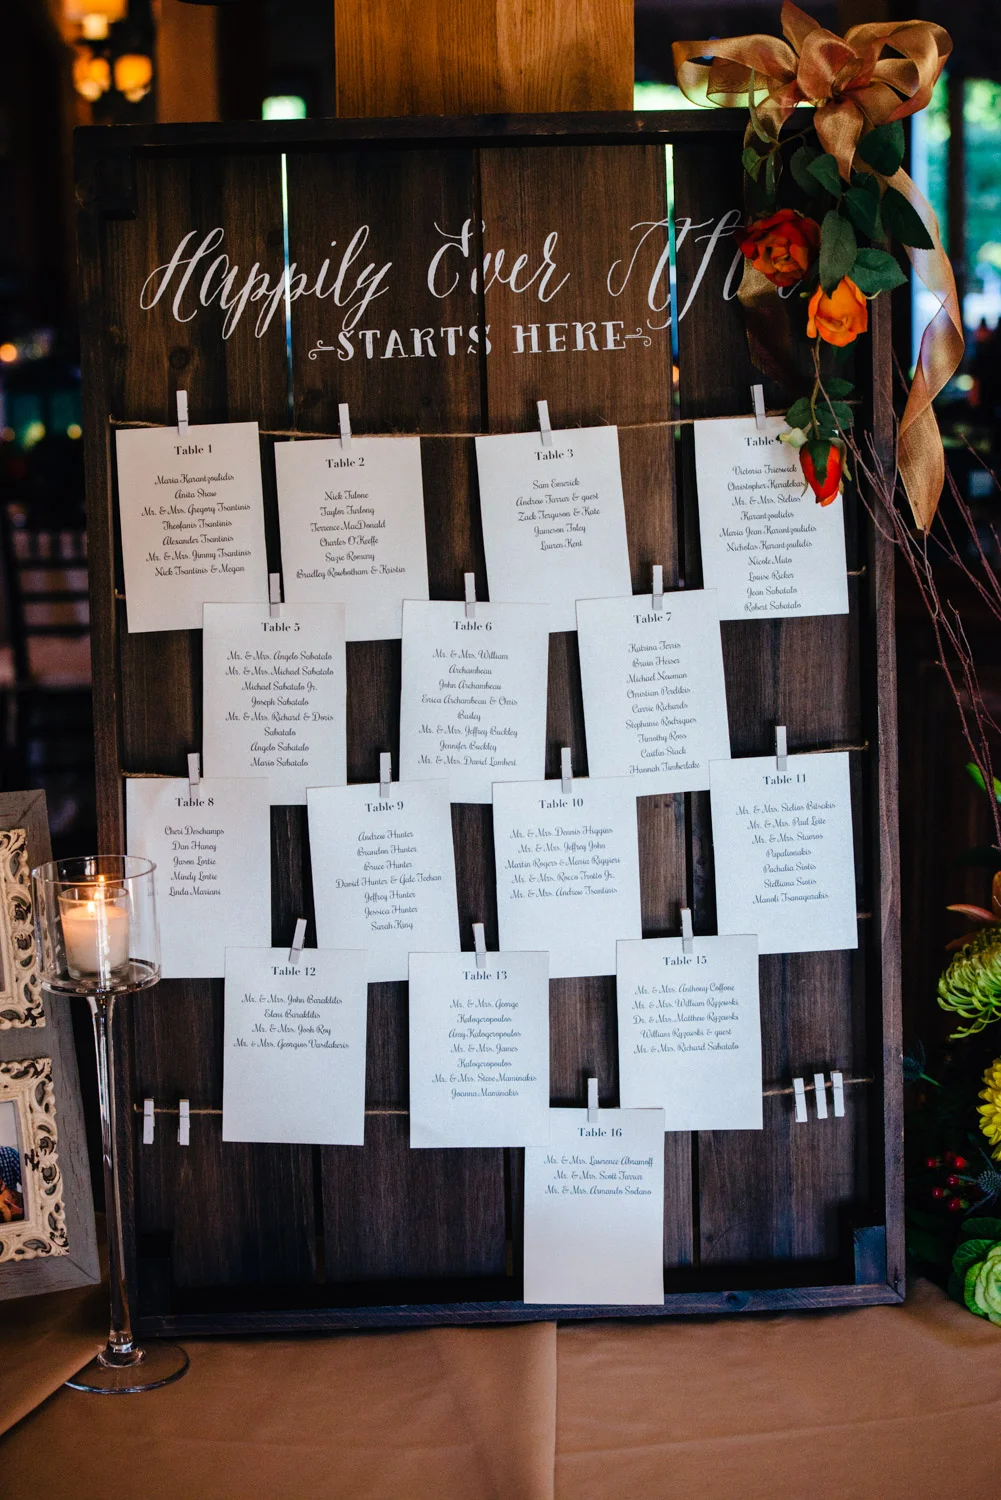 Happily Ever Aft
STARTS HERE
Table 1
Maria Karantzoulidis
Anita Shaw
Mr. & Mrs. Gregory Tsantinis
Theofanis Tsantinis
Alexander Tsantinis
Mr. & Mrs. Jimmy Tsantinis
Nick Tsantinis & Megan
Table 2
Nick Tulone
Taylor Furlong
Terrence MacDonald
Charles O'Keeffe
Suzie Romany
Bradley Rowbotham & Kristin
Table 3
Sam Emerick
Andrew Farrar & guest
Zack Ferguson & Kate
Jameson Foley
Lauren Kent
Table
Victoria Frieswick
Christopher Karalekas
Mr. & Mrs. Stelios
Karantzoulidis
Maria Jean Karantzoulidis
Nicholas Karantzoulidis
Nicole Muto
Louise Ricker
Jean Sabatalo
Robert Sabatalo
Table 5
Mr. & Mrs. Angelo Sabatalo
Mr. & Mrs. Michael Sabatalo
Michael Sabatalo Jr.
Joseph Sabatalo
Mr. & Mrs. Richard & Doris
Sabatalo
Angelo Sabatalo
Mario Sabatalo
Table 6
Mr. & Mrs. William
Archambeau
John Archambeau
Erica Archambeau & Chris
Bailey
Mr. & Mrs. Jeffrey Buckley
Jennifer Buckley
Mr. & Mrs. David Lambert
Table 7
Katrina Ferris
Brain Heiser
Michael Newman
Christian Perdikis
Carrie Richards
Stephanie Rodriques
Timothy Ross
Caitlin Stack
Hannah Timberlake
Table 8
Cheri Deschamps
Dan Haney
Jason Lortie
Mindy Lortie
Linda Mariani
Table 9
Andrew Hunter
Brandon Hunter
Bruce Hunter
David Hunter & Gale Teehan
Jeffrey Hunter
Jessica Hunter
Sarah King
Table 10
Mr. & Mrs. Dennis Higgins
Mr. & Mrs. Jeffrey John
Martin Rogers & Maria Riggieri
Mr. & Mrs. Rocco Trotto Jr.
Mr. & Mrs. Andrew Tsantinis
Table 11
Mr. & Mrs. Stelios Bitsakis
Mr. & Mrs. Paul Leite
Mr. & Mrs. Stamos
Papalionakis
Pachalia Siotis
Stelliana Siotis
Manoli Tsanagarakis
Table 12
Mr. & Mrs. John Baraklilis
Eleni Baraklilis
Mr. & Mrs. Josh Roy
Mr. & Mrs. Georgios Vasilakeris
Table 13
Mr. & Mrs. George
Kalogeropoulos
Amy Kalogeropoulos
Mr. & Mrs. James
Kalogeropoulos
Mr. & Mrs. Steve Maminakis
Joanna Maminakis
Table 15
Mr. & Mrs. Anthony Coffone
Mr. & Mrs. William Ryzewski
Dr. & Mrs. Matthew Ryzewski
William Ryzewski & guest
Mr. & Mrs. Richard Sabatalo
Table 16
Mr. & Mrs. Lawrence Abramoff
Mr. & Mrs. Scott Farrar
Mr. & Mrs. Armando Sodano